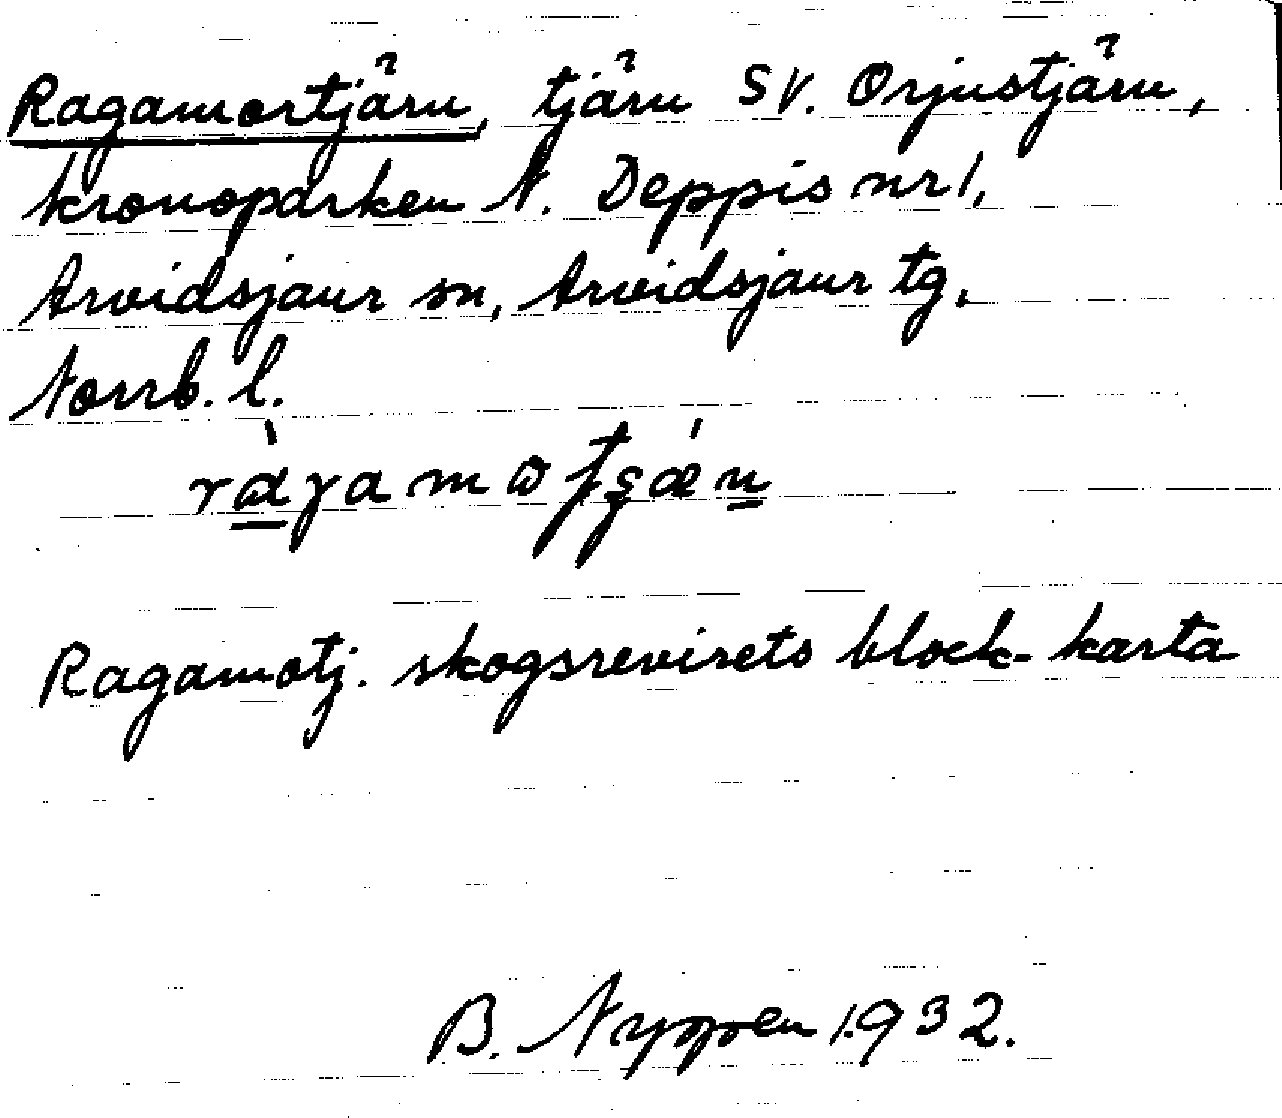 Ragamortjärn, tjärn SV. Orjustjärn,
kronoparken N. Deppis nr 1,
Arvidsjaur sn, Arvidsjaur tg.
Norrb. l.
Ragamotj. skogsrevirets block-karta
B. Nyppen 1932.